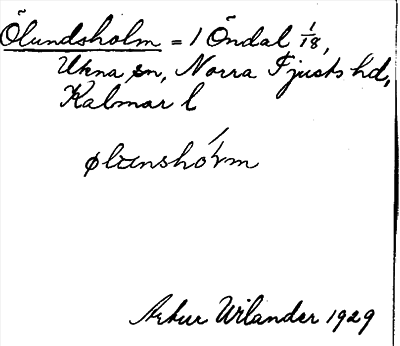 Ölundsholm = 1 Öndal 1/18,
Ukna sn, Norra Tjusts hd,
Kalmar l
ølunshólm
Artur Wilander 1929